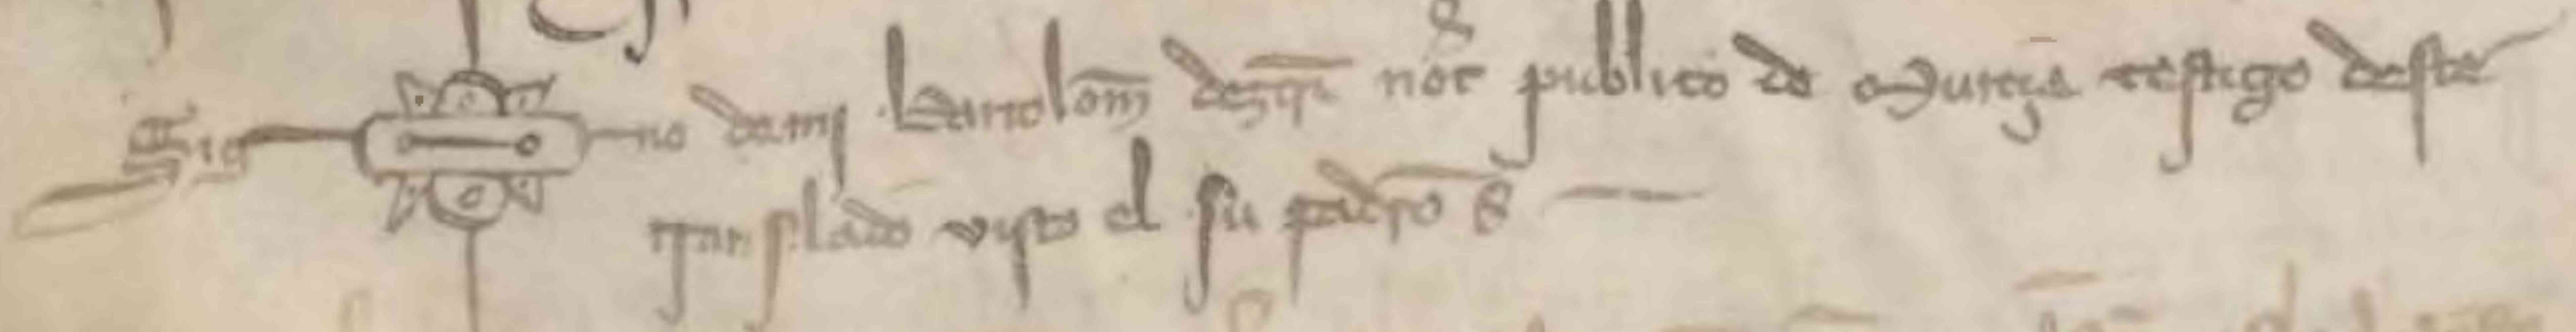 Signo de mi Bartolom desqr not publico de Murçia testigo deste
translado visto el su padro